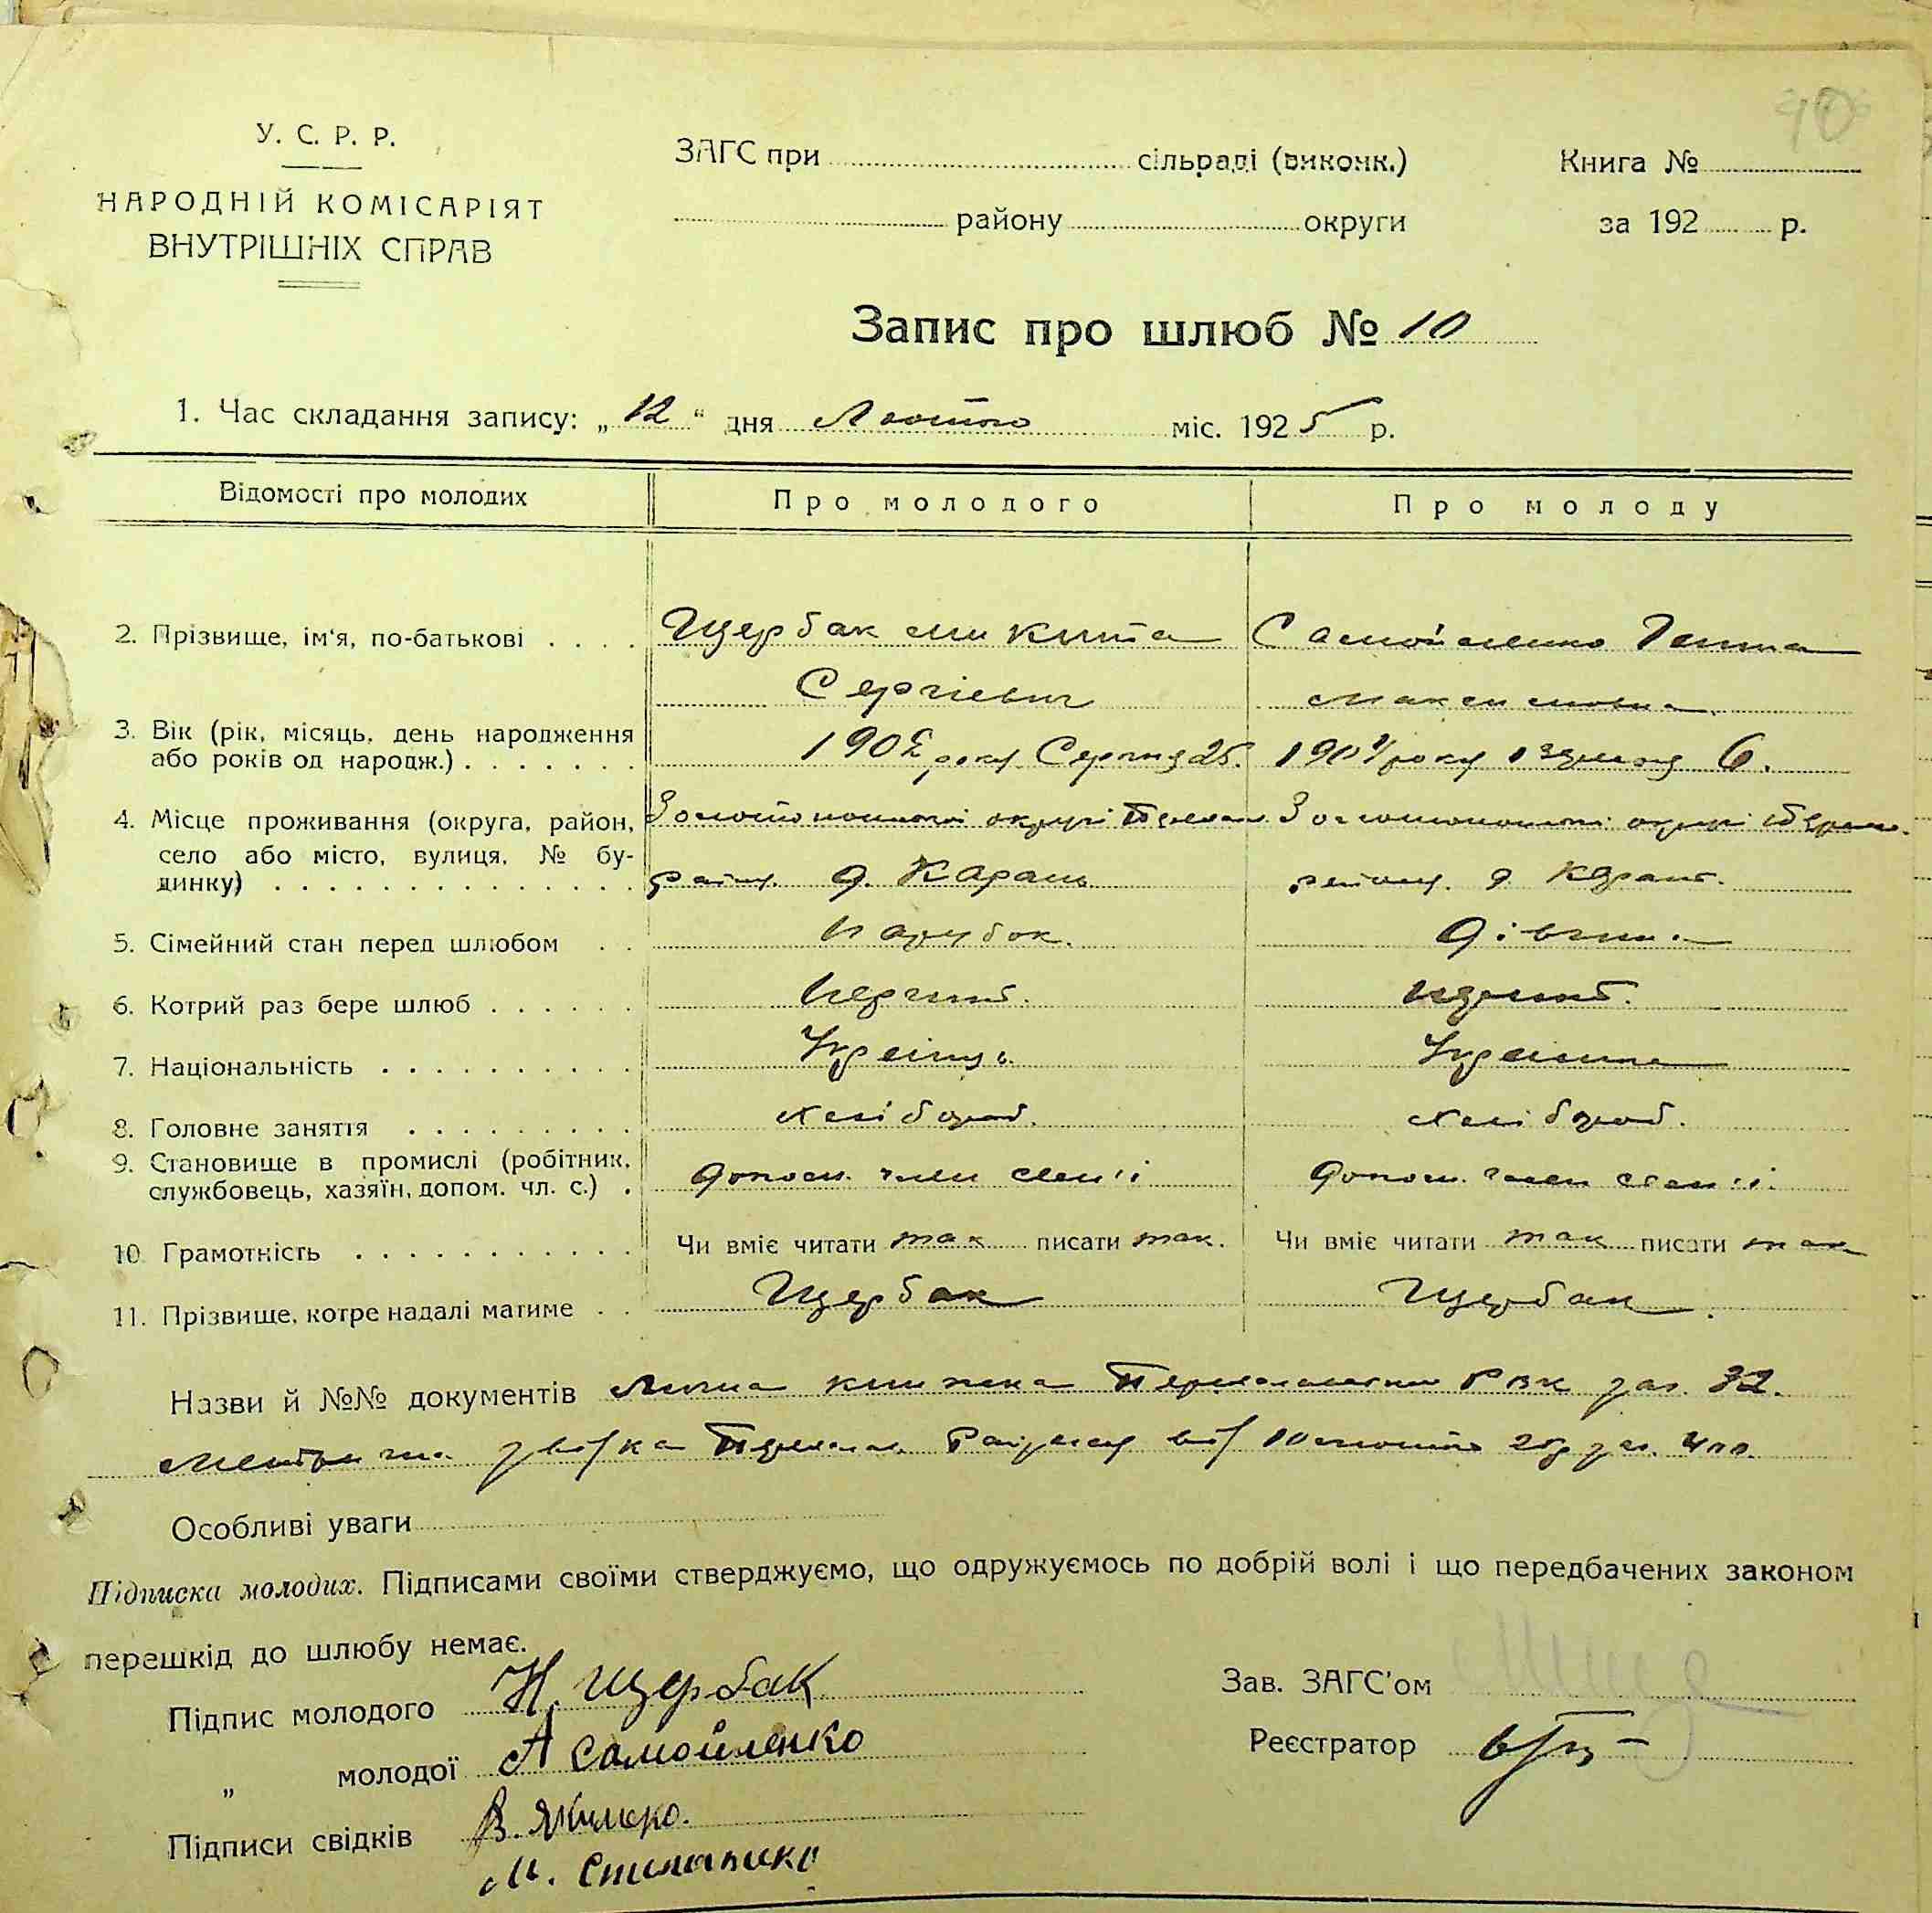 У. С. Р. Р.
НАРОДНІЙ КОМІСАРІЯТ
ВНУТРІШНІХ СПРАВ
ЗАГС при сільраді (виконк.)
району округи
Книга №
за 192 р.
Запис про шлюб № 10
1. Час складання запису: „12“ дня Лютого міс. 1925 р.
Відомості про молодих
Про молодого
Про молоду
2. Прізвище, ім'я, по-батькові
Щербак Микита
Сергієвич
Самойленко Ганна
Максимовна
3. Вік (рік, місяць, день народження
або років од народж.)
року Серпня 25.
року 6.
4. Місце проживання (округа, район,
село або місто, вулиця, № бу-
динку)
Золотоноської округи Переясл.
району. д. Карань
Золотоноської округи Переясл.
району. д Карань.
5. Сімейний стан перед шлюбом
Парубок.
Дівчина
6. Котрий раз бере шлюб
Перший.
Перший.
7. Національність
Українець.
Українка
8. Головне заняття
Хлібороб.
Хлібороб.
9. Становище в промислі (робітник,
службовець, хазяїн, допом. чл. с.)
Допом. член сем'ї
Допом. член сем'ї.
10. Грамотність
Чи вміє читати так писати так.
Чи вміє читати так писати так
11. Прізвище, котре надалі матиме
Щербак
Щербак.
Назви й №№ документів книжка Переяславським РВК за. 32.
Метрична Переяслав. від 10 лютого
Особливі уваги
Підписка молодих. Підписами своїми стверджуємо, що одружуємось по добрій волі і що передбачених законом
перешкід до шлюбу немає.
Підпис молодого Н. Щербак
„ молодої А Самойленко
Підписи свідків В.
М.
Зав. ЗАГС'ом
Реєстратор